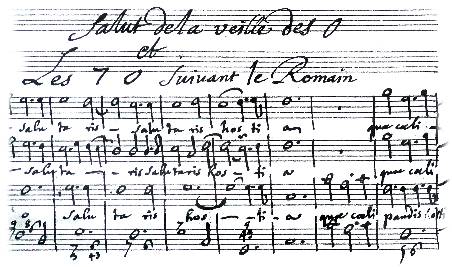 Salut de la veille des O
et
Les 7 O suivant le Romain
salu ta ris salu ta ris hos ti a quae cali
salu ta ris salutaris hos ti a quae cali
o salu ta ris hos ti a quae cali pandis osti